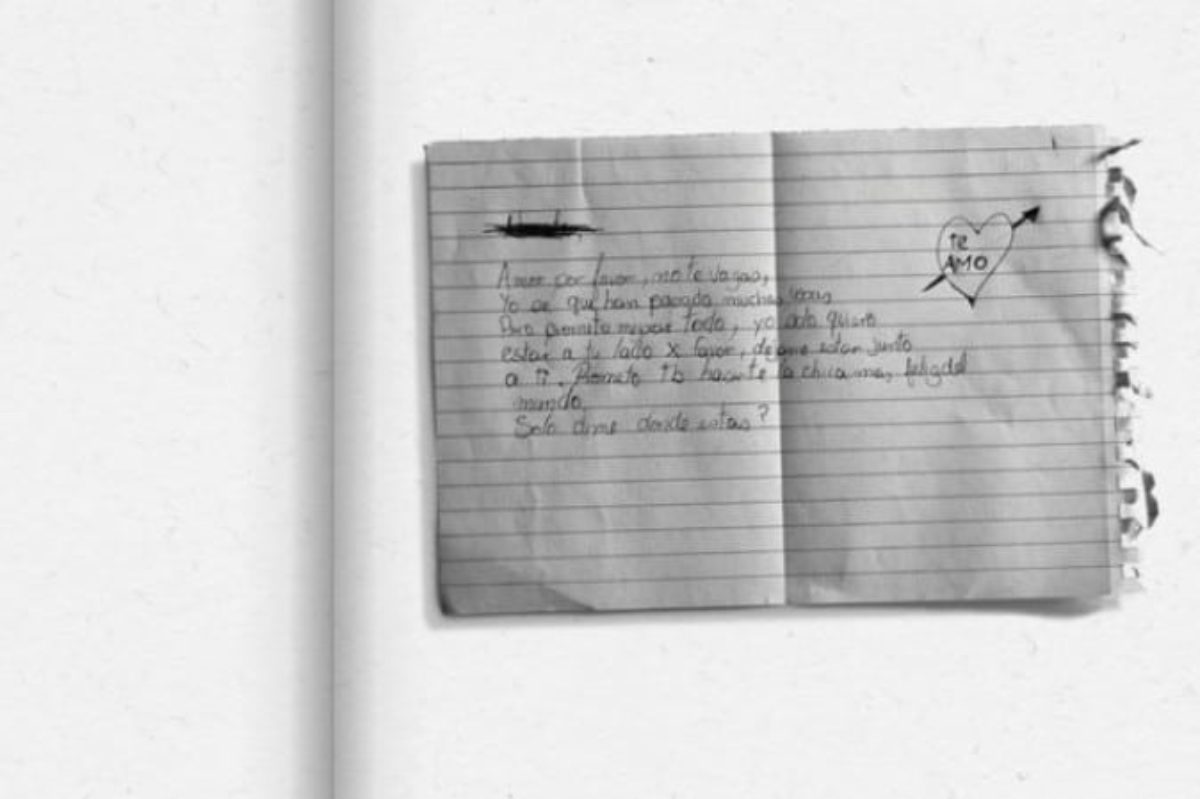 Amor por favor, no te vayas,
Yo se que han pasado muchas cosas
Pero prometo mejorar todo, yo solo quiero
estar a tu lado x favor, dejame estar junto
a ti. Prometo hacerte la chica mas feliz del
mundo,
Solo dime donde estas?
te
AMO